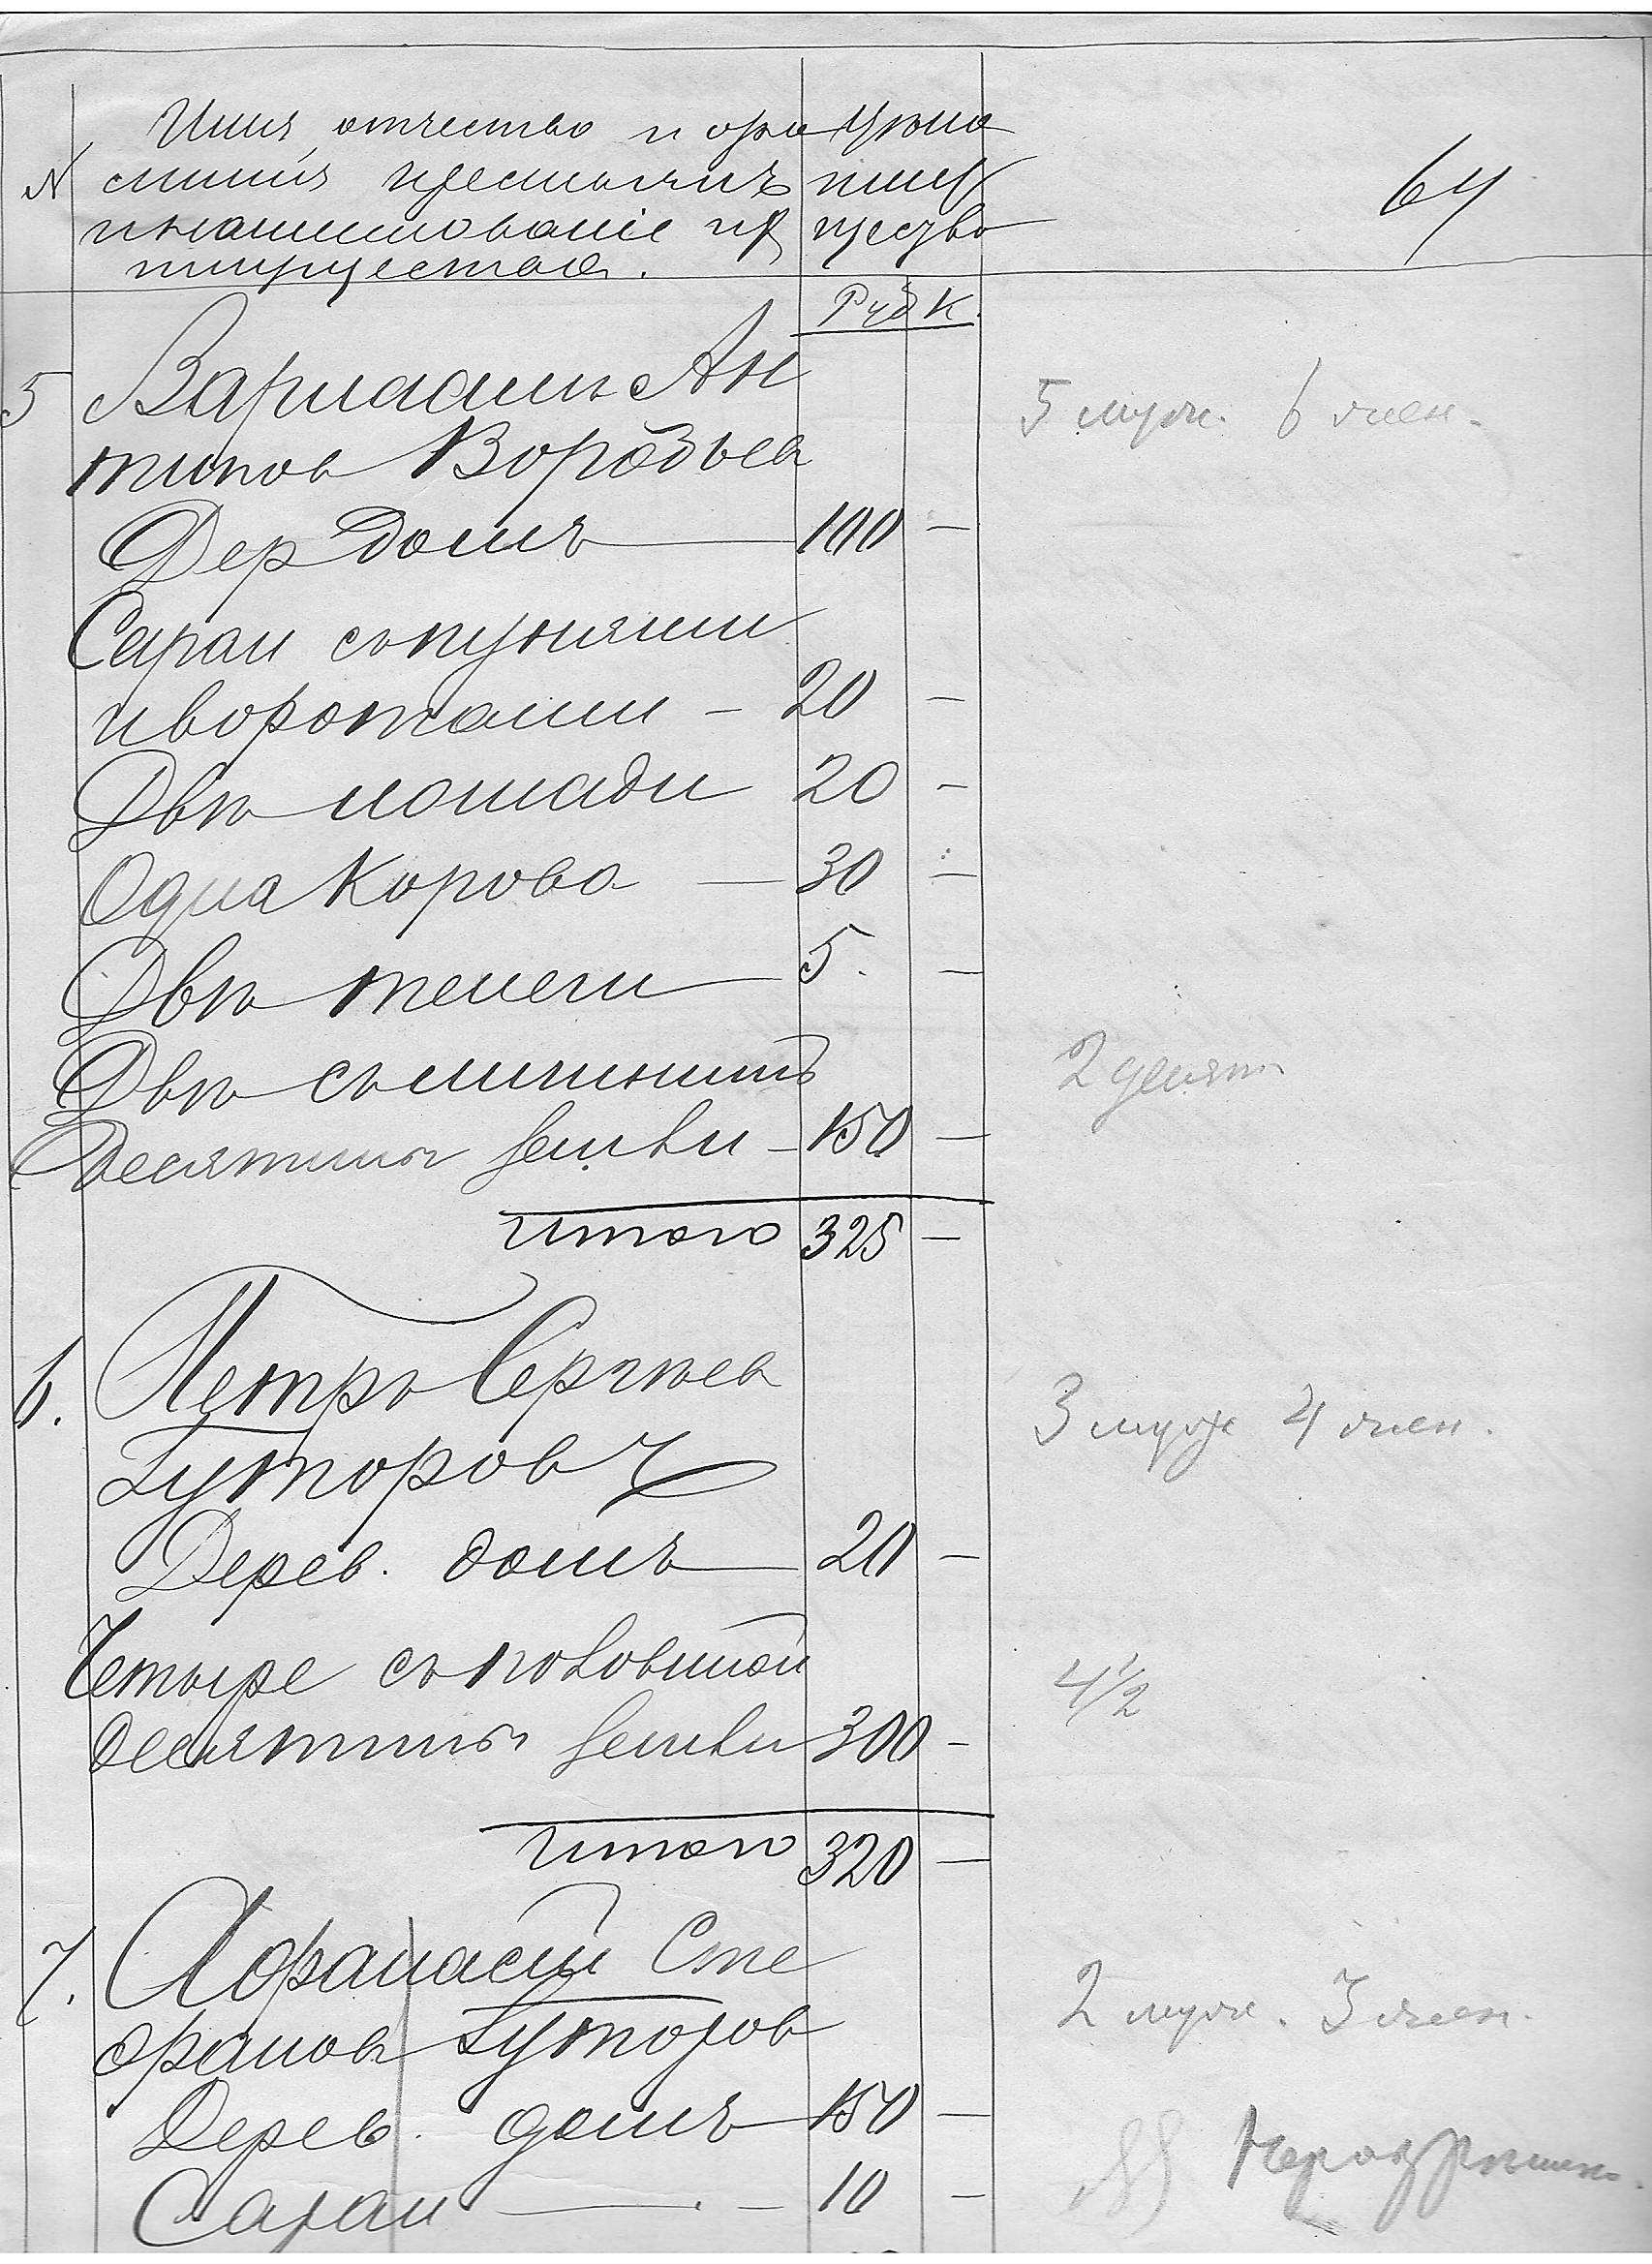 Имя, отчество и фа Цѣна
№ милія крестьянъ иму
и наименованіе их щество
имущества.
64
Руб К.
5 Варлаамъ Ан
типов Воробьев
5 муж. 6 жен.
Дер домъ 100 —
Сараи съ кухнями
и воротами — 20 —
Двѣ лошади 20 —
Одна корова — 30 —
Двѣ телеги — 5. —
Двѣ съ
2 десят
десятины земли — 150 —
итого 325 —
6. Петръ Сергѣев
Гуторов
3 муж 4 жен.
Дерев. домъ 20 —
Четыре съ половиной
4 1/2
десятины земли 300 —
итого 320 —
7. Афанасій Сте
фанов Гуторов
2 муж. 3 жен.
Дерев. домъ 150 —
Сараи — 10 —